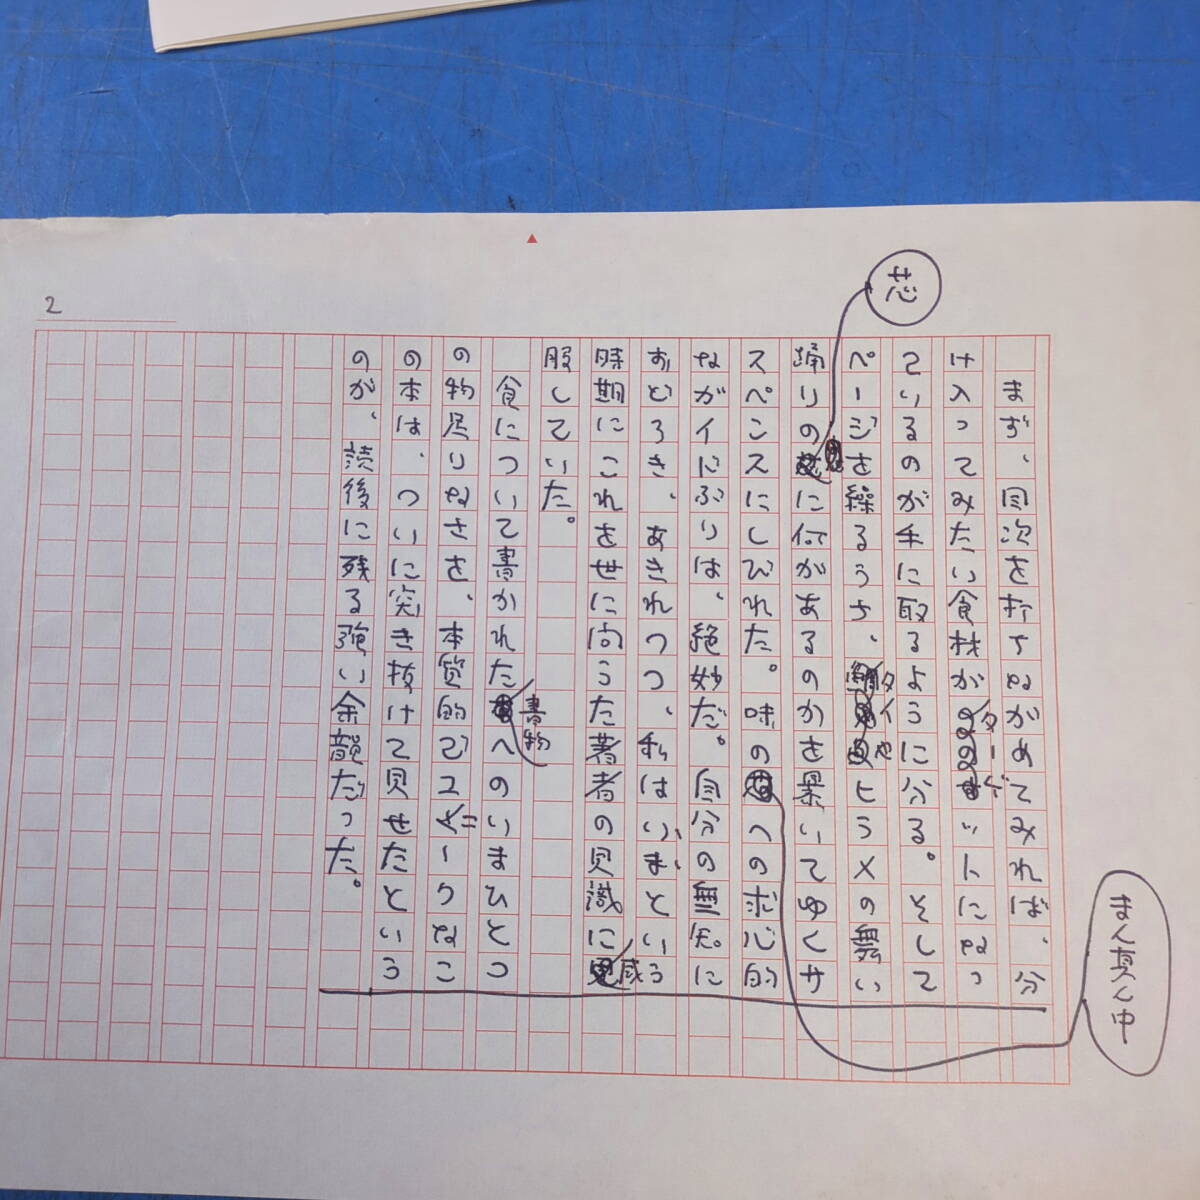 2
芯
まず、目次を打ちながめてみれば、分
け入ってみたい食材がターゲットになっ
ているのが手に取るように分る。そして
ページを繰るうち、タイやヒラメの舞い
踊りの に何があるのかを暴いてゆくサ
スペンスにしびれた。味の への求心的
ながイドぶりは、絶妙だ。自分の無知に
おどろき、あきれつつ、私はいまという
時期にこれを世に向うた著者の見識に感
服していた。
食について書かれた書物へのいまひとつ
の物足りなさを、本質的でユニークなこ
の本は、ついに突き抜けて見せたという
のが、読後に残る強い余韻だった。
まん真ん中